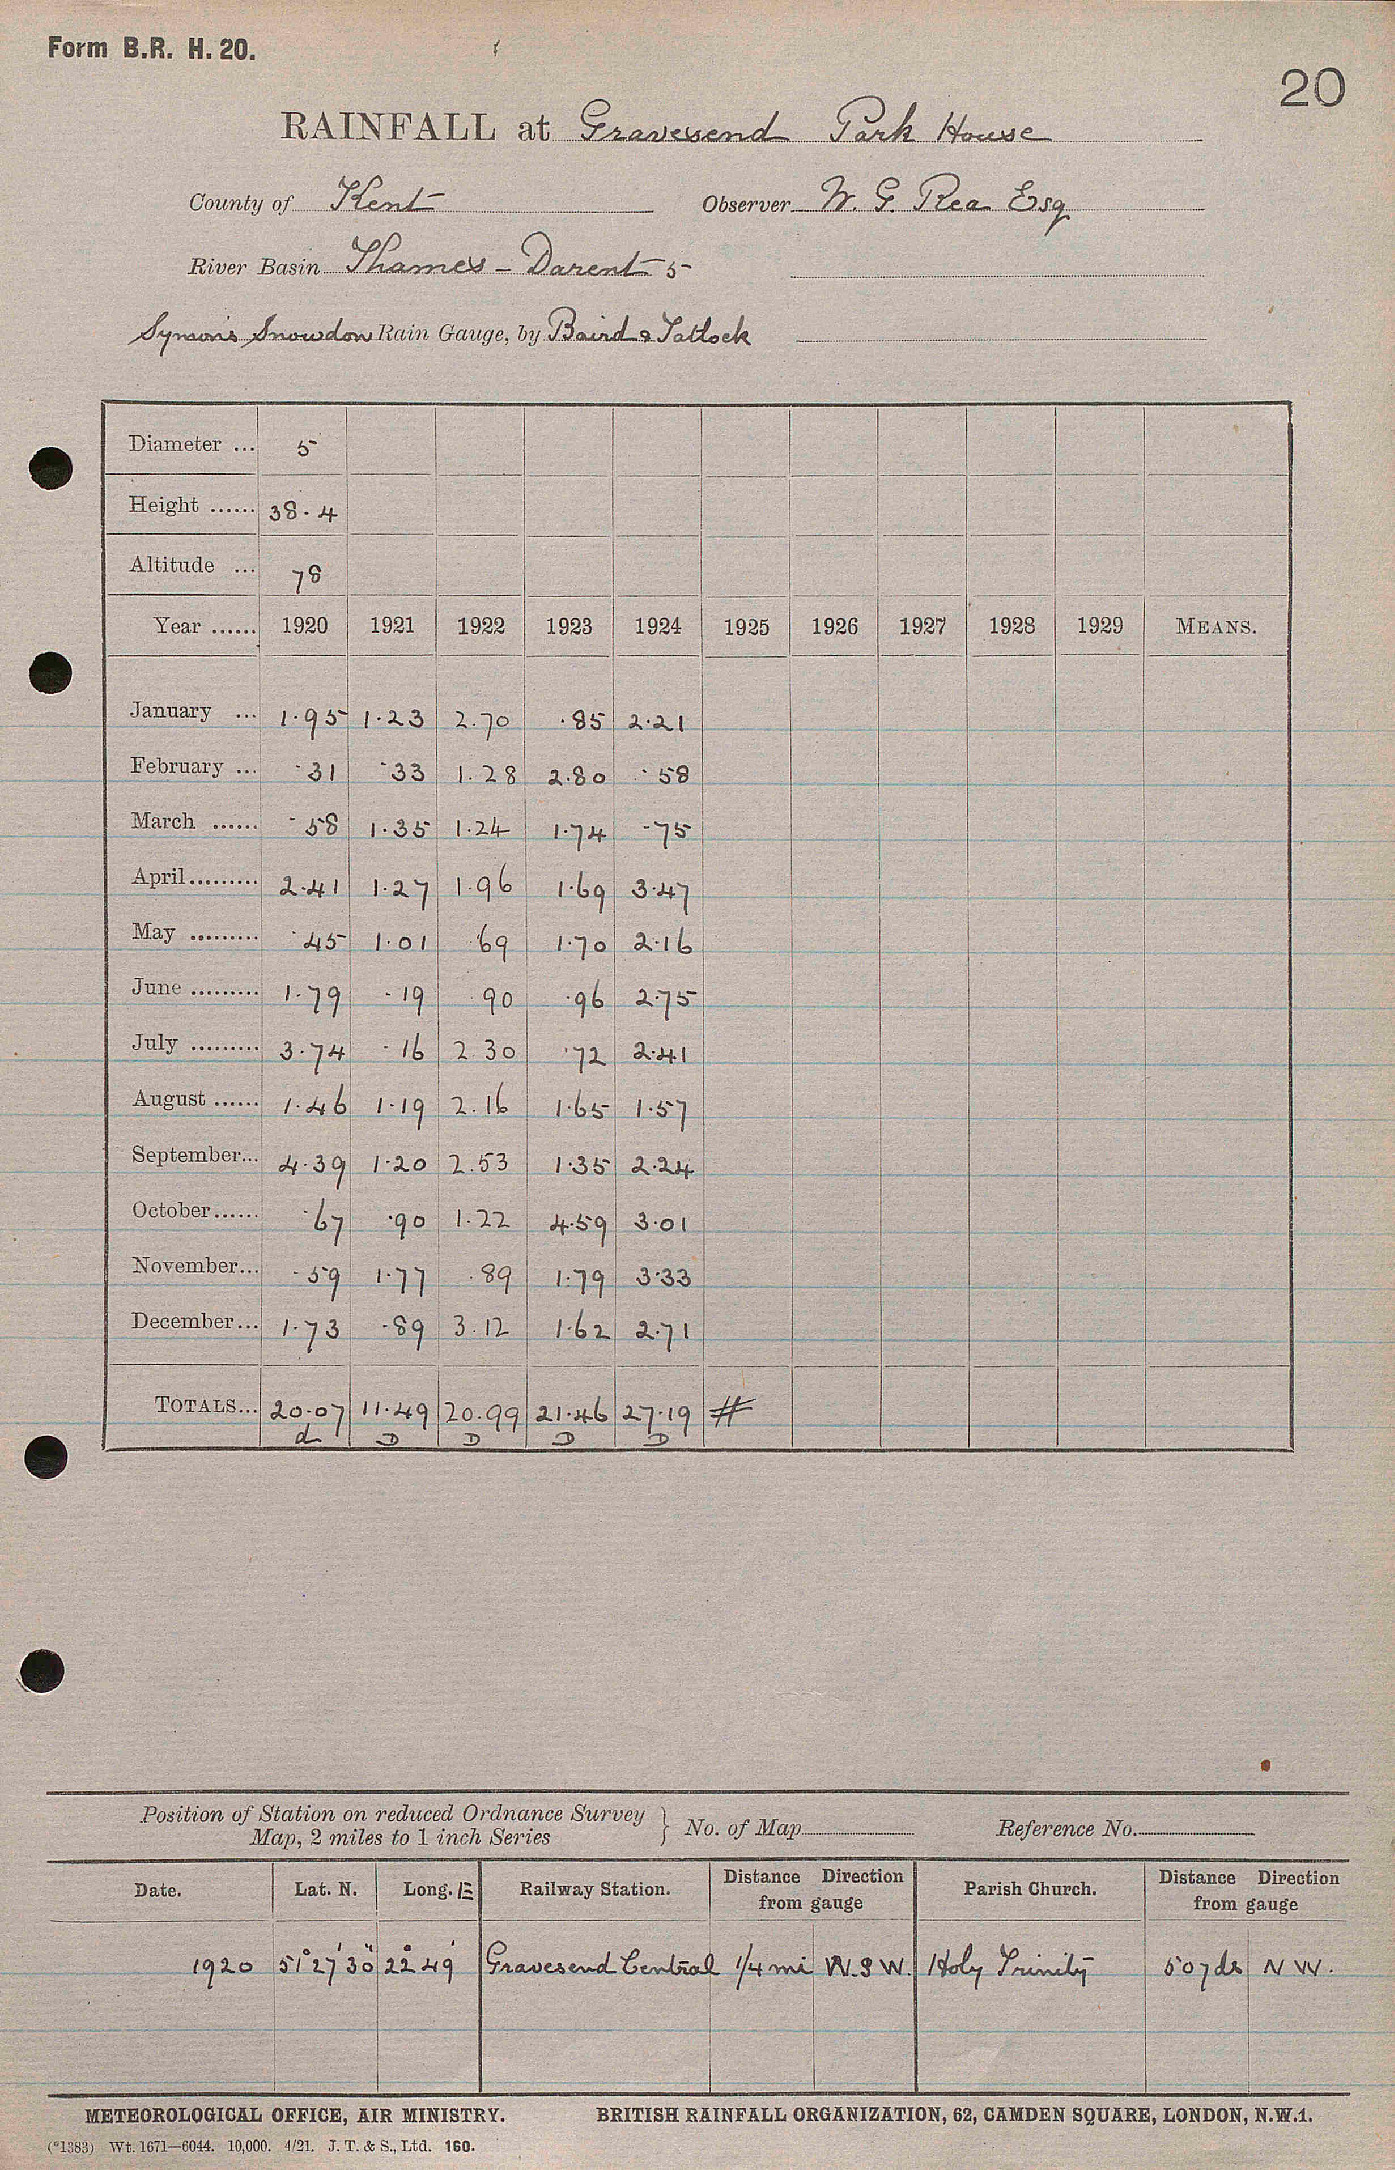 Form B.R. H. 20.
20
RAINFALL at Gravesend Park House
County of Kent Observer W. G. Rea Esq
River Basin Thames - Darent 5
Symon's Snowdon Rain Gauge, by Baird & Tatlock
Diameter ... 5
Height ...... 38.4
Altitude ... 78
Year ...... 1920 1921 1922 1923 1924 1925 1926 1927 1928 1929 MEANS.
January ... 1.95 1.23 2.70 .85 2.21
February ... .31 .33 1.28 2.80 .58
March ...... .58 1.35 1.24 1.74 .75
April......... 2.41 1.27 1.96 1.69 3.47
May ......... .45 1.01 .69 1.70 2.16
June ......... 1.79 .19 .90 .96 2.75
July ......... 3.74 .16 2.30 .72 2.41
August ...... 1.46 1.19 2.16 1.65 1.57
September... 4.39 1.20 2.53 1.35 2.24
October...... .67 .90 1.22 4.59 3.01
November... .59 1.77 .89 1.79 3.33
December... 1.73 .89 3.12 1.62 2.71
TOTALS... 20.07 11.49 20.99 21.46 27.19 #
d D D D D
Position of Station on reduced Ordnance Survey Map, 2 miles to 1 inch Series } No. of Map Reference No.
Date. Lat. N. Long. E Railway Station. Distance Direction from gauge Parish Church. Distance Direction from gauge
1920 51° 27' 30" 22° 49' Gravesend Central 1/4 mi W.S W. Holy Trinity 50 yds N W.
METEOROLOGICAL OFFICE, AIR MINISTRY. BRITISH RAINFALL ORGANIZATION, 62, CAMDEN SQUARE, LONDON, N.W.1.
(*1383) Wt. 1671—6044. 10,000. 4/21. J. T. & S., Ltd. 160.